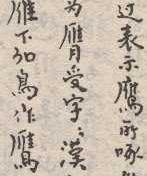 过表示鷹所啄
为膺受字；漢
雁下加鳥作鷹